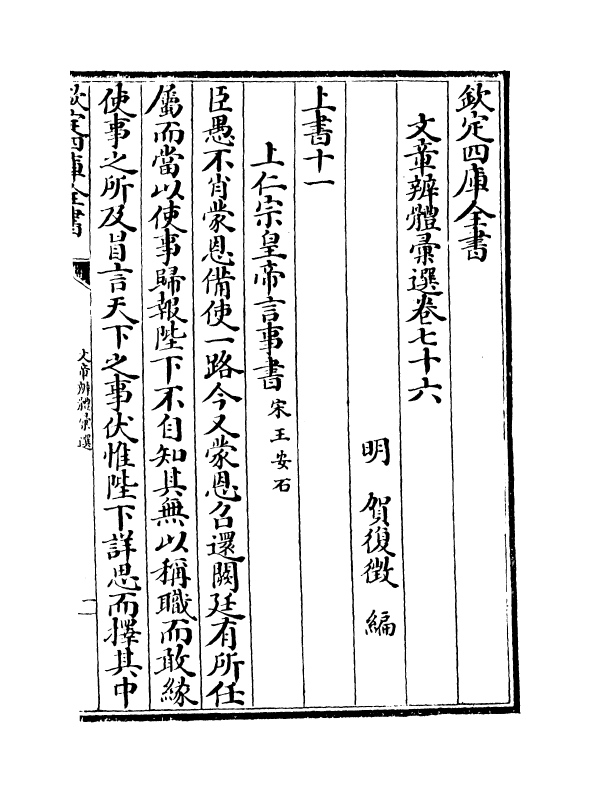 欽定四庫全書
文章辨體彙選卷七十六
明　賀復徵　編
上書十一
上仁宗皇帝言事書宋王安石
臣愚不肖蒙恩備使一路今又蒙恩召還闕廷有所任
屬而當以使事歸報陛下不自知其無以稱職而敢緣
使事之所及冒言天下之事伏惟陛下詳思而擇其中
欽定四庫全書
文章辨體彙選
一